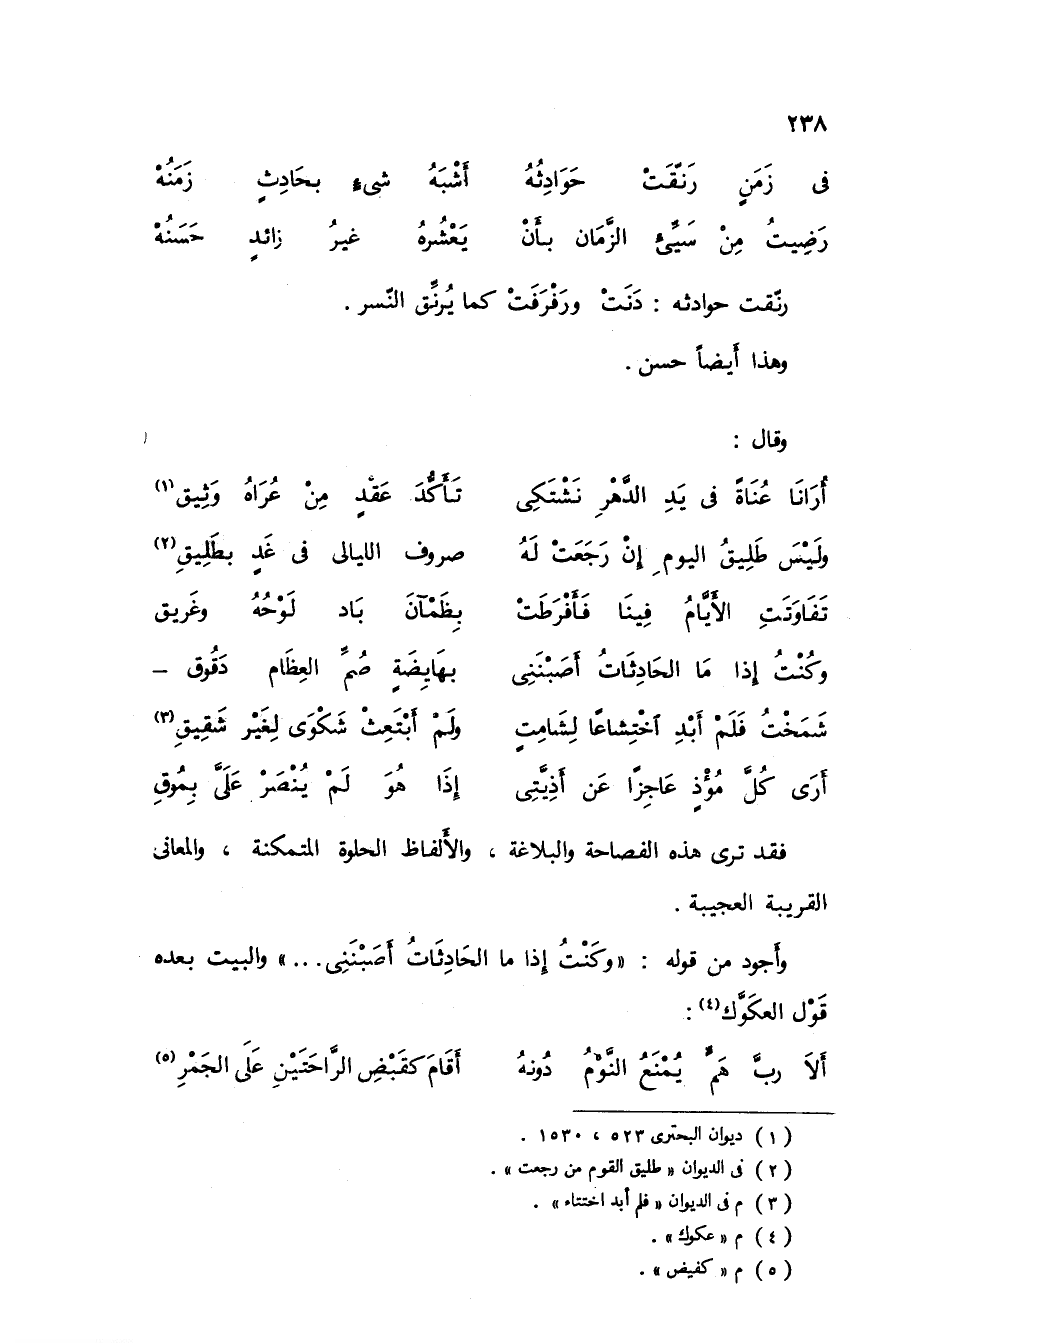 ٢٣٨
فى زَمَنٍ رَنَّقَتْ حَوَادِثُهُ أَشْبَهُ شىءٍ بحَادِثٍ زَمَنُهْ
رَضِيتُ مِنْ سَيِّئِ الزَّمَان بأَنْ يَعْشُرهُ غيرُ زائدٍ حَسَنُهْ
رنّقت حوادثه : دَنَتْ ورَفْرَفَتْ كما يُرنِّق النّسر .
وهذا أَيضاً حسن .
وقال :
أُرَانَا عُنَاةً فى يَدِ الدَّهْرِ نَشْتَكِى تَأَكُّدَ عَقْدٍ مِنْ عُرَاهُ وَثِيقِ(١)
ولَيْسَ طَلِيقُ اليومِ إِنْ رَجَعَتْ لَهُ صروف الليالى فى غَدٍ بطَلِيقِ(٢)
تَفَاوَتَتِ الأَيَّامُ فِينَا فَأَفْرَطَتْ بِظَمْآنَ بَاد لَوْحُهُ وغَريق
وكُنْتُ إِذا مَا الحَادِثَاتُ أَصَبْنَنِى بهَايِضَةٍ صُمَّ العِظَام دَقُوق –
شَمَخْتُ فَلَمْ أَبْدِ اخْتِشاعًا لِشَامِتٍ ولَمْ أَبْتَعِثْ شَكْوَى لِغَيْر شَقِيقِ(٣)
أَرَى كُلَّ مُؤْذٍ عَاجِزًا عَن أَذِيَّتِى إِذَا هُوَ لَمْ يُنْصَرْ عَلَىَّ بِمُوقِ
فقد ترى هذه الفصاحة والبلاغة ، والأَلفاظ الحلوة المتمكنة ، والمعانى
القريبة العجيبة .
وأَجود من قوله : «وكَنْتُ إِذا ما الحَادِثَاتُ أَصَبْنَنِى...» والبيت بعده
قَوْل العكَوَّك(٤) :
أَلاَ ربَّ هَمٍّ يُمْنَعُ النَّوْمُ دُونهُ أَقَامَ كقَبْضِ الرَّاحَتَيْنِ عَلَى الجَمْرِ(٥)
(١) ديوان البحترى ٥٢٣ ، ١٥٣٠ .
(٢) فى الديوان « طليق القوم من رجعت » .
(٣) م فى الديوان « فلم أبد اختتاء » .
(٤) م « عكوك » .
(٥) م « كفيض » .